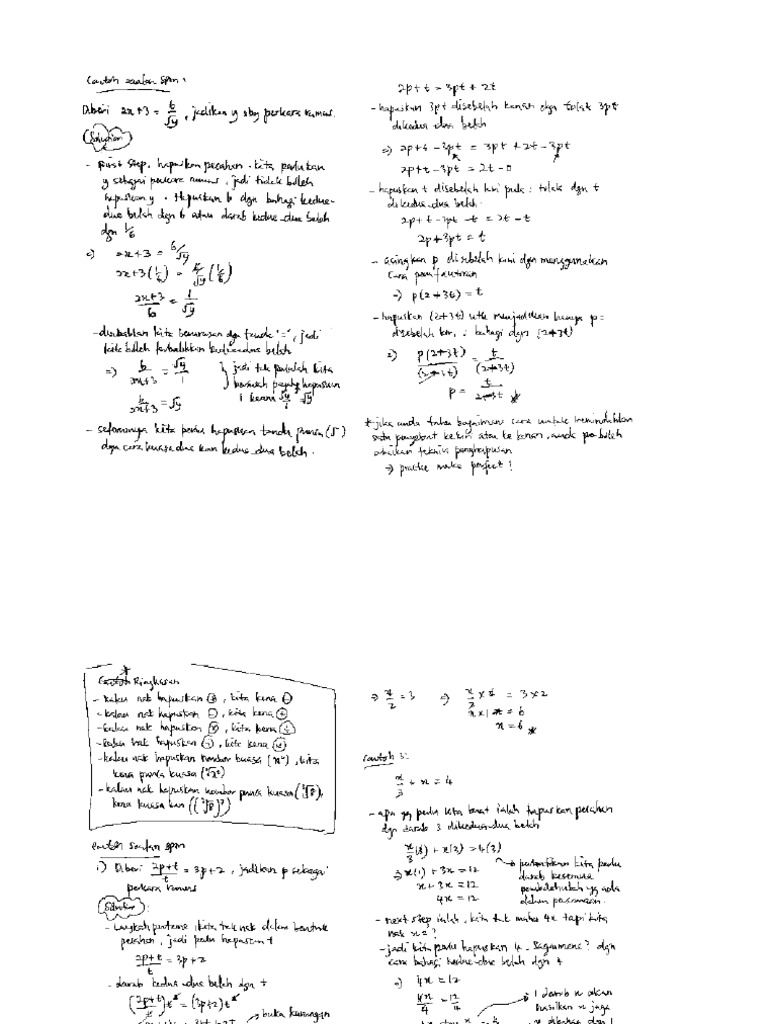 Contoh soalan SPM :
Diberi 2x+3 = 6/√y , jadikan y sbg perkara rumus.
Solution
- First step, hapuskan pecahan. Kita perlukan
y sebagai perkara rumus, jadi tidak boleh
hapuskan y. Hapuskan 6 dgn bahagi kedua-
dua belah dgn 6 atau darab kedua-dua belah
dgn 1/6
2x+3 = 6/√y
2x+3 (1/6) = 6/√y (1/6)
2x+3/6 = 1/√y
kita boleh terbalikkan kedua-dua belah
=) 6/2x+3 = √y/1
6/2x+3 = √y
} jadi tak perlulah kita
1 kerana √y/1 = √y
- seterusnya kita perlu hapuskan tanda punca (√)
dgn cara kuasa dua kan kedua-dua belah.
2p+t = 3pt + 2t
- hapuskan 3pt disebelah kanan dgn tolak 3pt
dikedua dua belah
=) 2p+t-3pt = 3pt + 2t - 3pt
2p+t-3pt = 2t-0
- hapuskan t disebelah kiri pula : tolak dgn t
dikedua-dua belah.
2p+t-3pt-t = 2t-t
2p+3pt = t
- asingkan p disebelah kiri dgn menggunakan
cara pemfaktoran
-) p(2+3t) = t
- hapuskan (2+3t) utk menjadikan hanya p=
disebelah kiri, ∴ bahagi dgn (2+3t)
=) p(2+3t)/(2+3t) = t/(2+3t)
p = t/2+3t *
* jika anda tahu bagaimana cara untuk memindahkan
satu pengebut ke kiri atau ke kanan, anda
abaikan teknik penghapusan
=) practice make perfect !
* Ringkasan
- kalau nak hapuskan +, kita kena -
- kalau nak hapuskan -, kita kena +
- kalau nak hapuskan ×, kita kena ÷
- kalau nak hapuskan ÷, kita kena ×
- kalau nak hapuskan nombor kuasa
kena punca kuasa
- kalau nak hapuskan nombor punca kuasa
kena kuasa kan
Contoh soalan SPM
1) Diberi 2p+t/t = 3p+2, jadikan p sebagai
perkara rumus
Solution :
- Langkah pertama, kita tak nak dalam bentuk
pecahan, jadi perlu hapuskan t
2p+t/t = 3p+2
- darab kedua-dua belah dgn t
(2p+t/t) t = (3p+2) t
buka kurungan
=) x/2 = 3 =) x/2 × 2 = 3 × 2
x × 1 = 6
x = 6 *
Contoh 3:
x/3 + x = 4
- apa yg perlu kita buat ialah hapuskan pecahan
dgn darab 3 dikedua-dua belah
x/3 (3) + x(3) = 4(3)
=) x(1) + 3x = 12
x + 3x = 12
4x = 12
perhatikan kita perlu
darab kesemua
yg ada
dalam persamaan.
- next step ialah, kita tak mahu 4x tapi kita
nak x = ?
- jadi kita perlu hapuskan 4. Bagaimana? dgn
cara bahagi kedua-dua belah dgn 4
=) 4x = 12
4x/4 = 12/4
1 darab x akan
hasilkan x juga